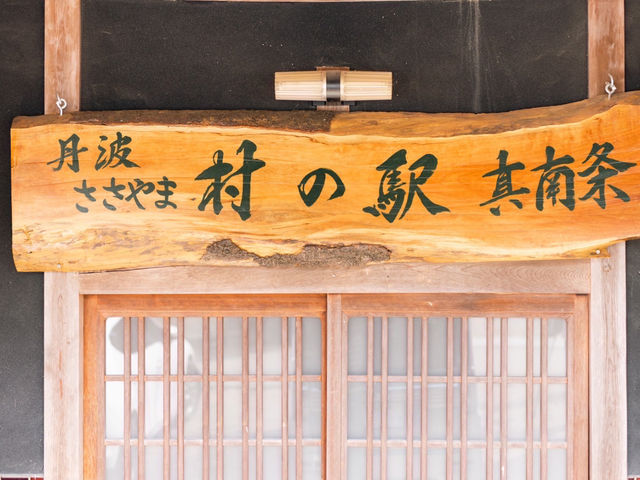 丹波
ささやま
村の駅 真南条